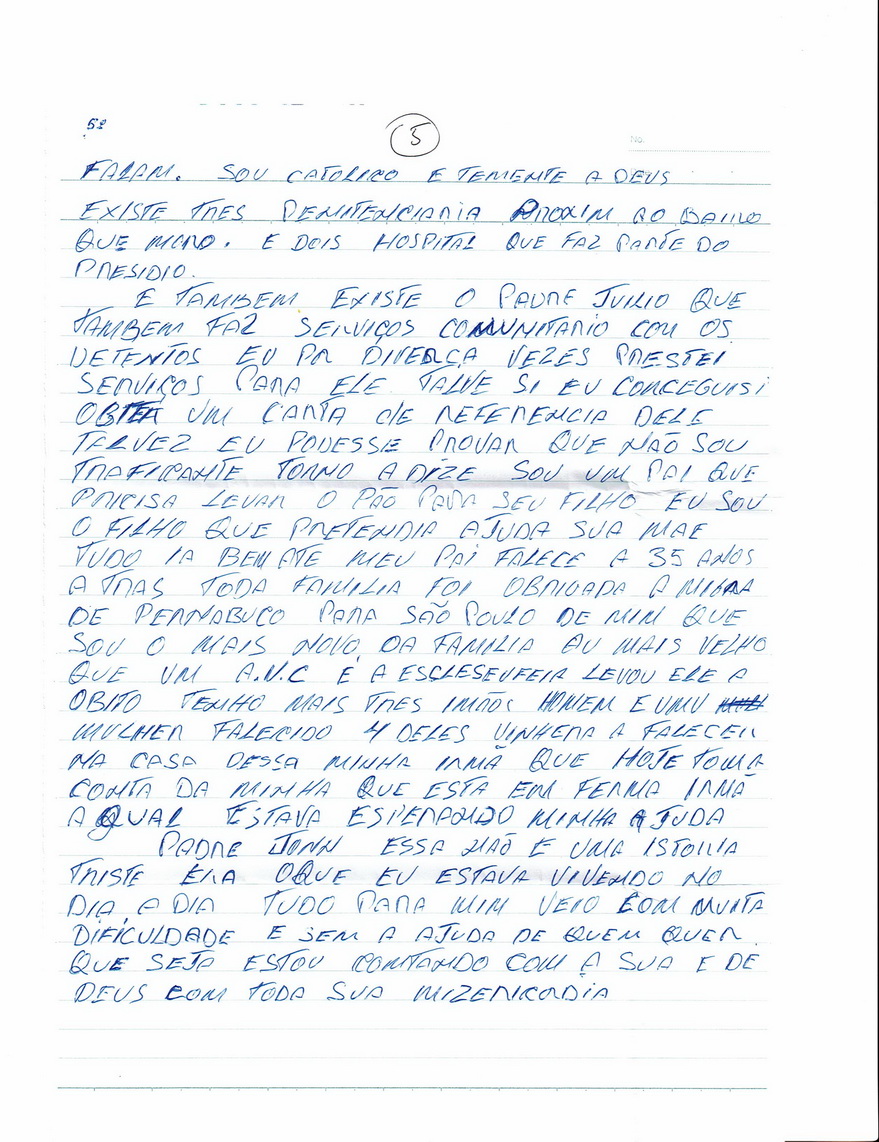 5ª
5
No.
FALAM. SOU CATOLICO E TEMENTE A DEUS
EXISTE TRES PENITENCIARIA PROXIM AO BAIRRO
QUE MORO. E DOIS HOSPITAL QUE FAZ PARTE DO
PRESIDIO.
E TAMBEM EXISTE O PADRE JULIO QUE
TAMBEM FAZ SERVIÇOS COMUNITARIO COM OS
DETENTOS EU POR DIVERÇA VEZES PRESTEI
SERVIÇOS PARA ELE TALVE SI EU CONCEGUISI
OBTER UM CARTA DE REFERENCIA DELE
TALVEZ EU PODESSE PROVAR QUE NÃO SOU
TRAFICANTE TORNO A DIZE SOU UM PAI QUE
PRICISA LEVAR O PÃO PARA SEU FILHO EU SOU
O FILHO QUE PRETENDIA AJUDA SUA MAE
TUDO IA BEM ATE MEU PAI FALECE A 35 ANOS
A TRAS TODA FAMILIA FOI OBRIGADA A MIGRA
DE PERNABUCO PARA SÃO POULO DE MIM QUE
SOU O MAIS NOVO DA FAMILIA AU MAIS VELHO
QUE UM A.V.C É A LEVOU ELE A
OBITO TENHO MAIS TRES IMÃOS HOMEM E UMU
MULHER FALECIDO 4 DELES VINHERA A FALECER
NA CASA DESSA MINHA IRMÃ QUE HOJE TOMA
CONTA DA MINHA QUE ESTA EM FERMA IRMÃ
A QUAL ESTAVA ESPERANDO MINHA AJUDA
PADRE JONN ESSA NÃO E UMA ISTORIA
TRISTE ERA OQUE EU ESTAVA VIVENDO NO
DIA A DIA TUDO PARA MIM VEIO COM MUITA
DIFICULDADE E SEM A AJUDA DE QUEM QUER
QUE SEJA ESTOU CONTANDO COM A SUA E DE
DEUS COM TODA SUA MIZERICORDIA